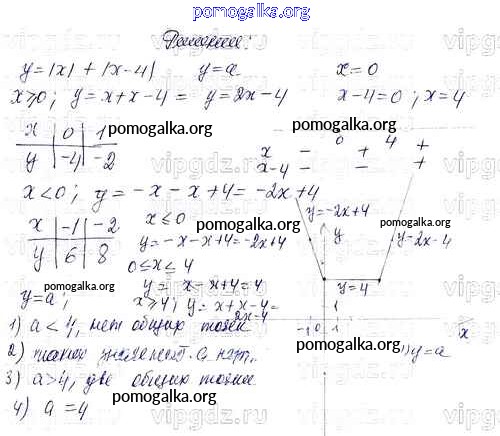 pomogalka.org
Решение:
y=|x|+|x-4|   y=a   x=0
x≥0; y=x+x-4= y=2x-4   x-4=0; x=4
x | 0 | 1   pomogalka.org
y | -4 | -2
0   4
x   -   +   +
x-4   -   -   +
pomogalka.org
x<0; y=-x-x+4=-2x+4
x | -1 | -2   x≤0
y | 6 | 8   y=-x-x+4=-2x+4
pomogalka.org
y=-2x+4   y   y=2x-4
pomogalka.org
0≤x≤4
y= x-x+4=4   y=4
y=a;   x≥4; y=x+x-4=
2x-4
1) a<4, нет общих точек
-1 0 1   x
2) а
pomogalka.org
1) y=a
3) a>4, две общие точки
4) a=4